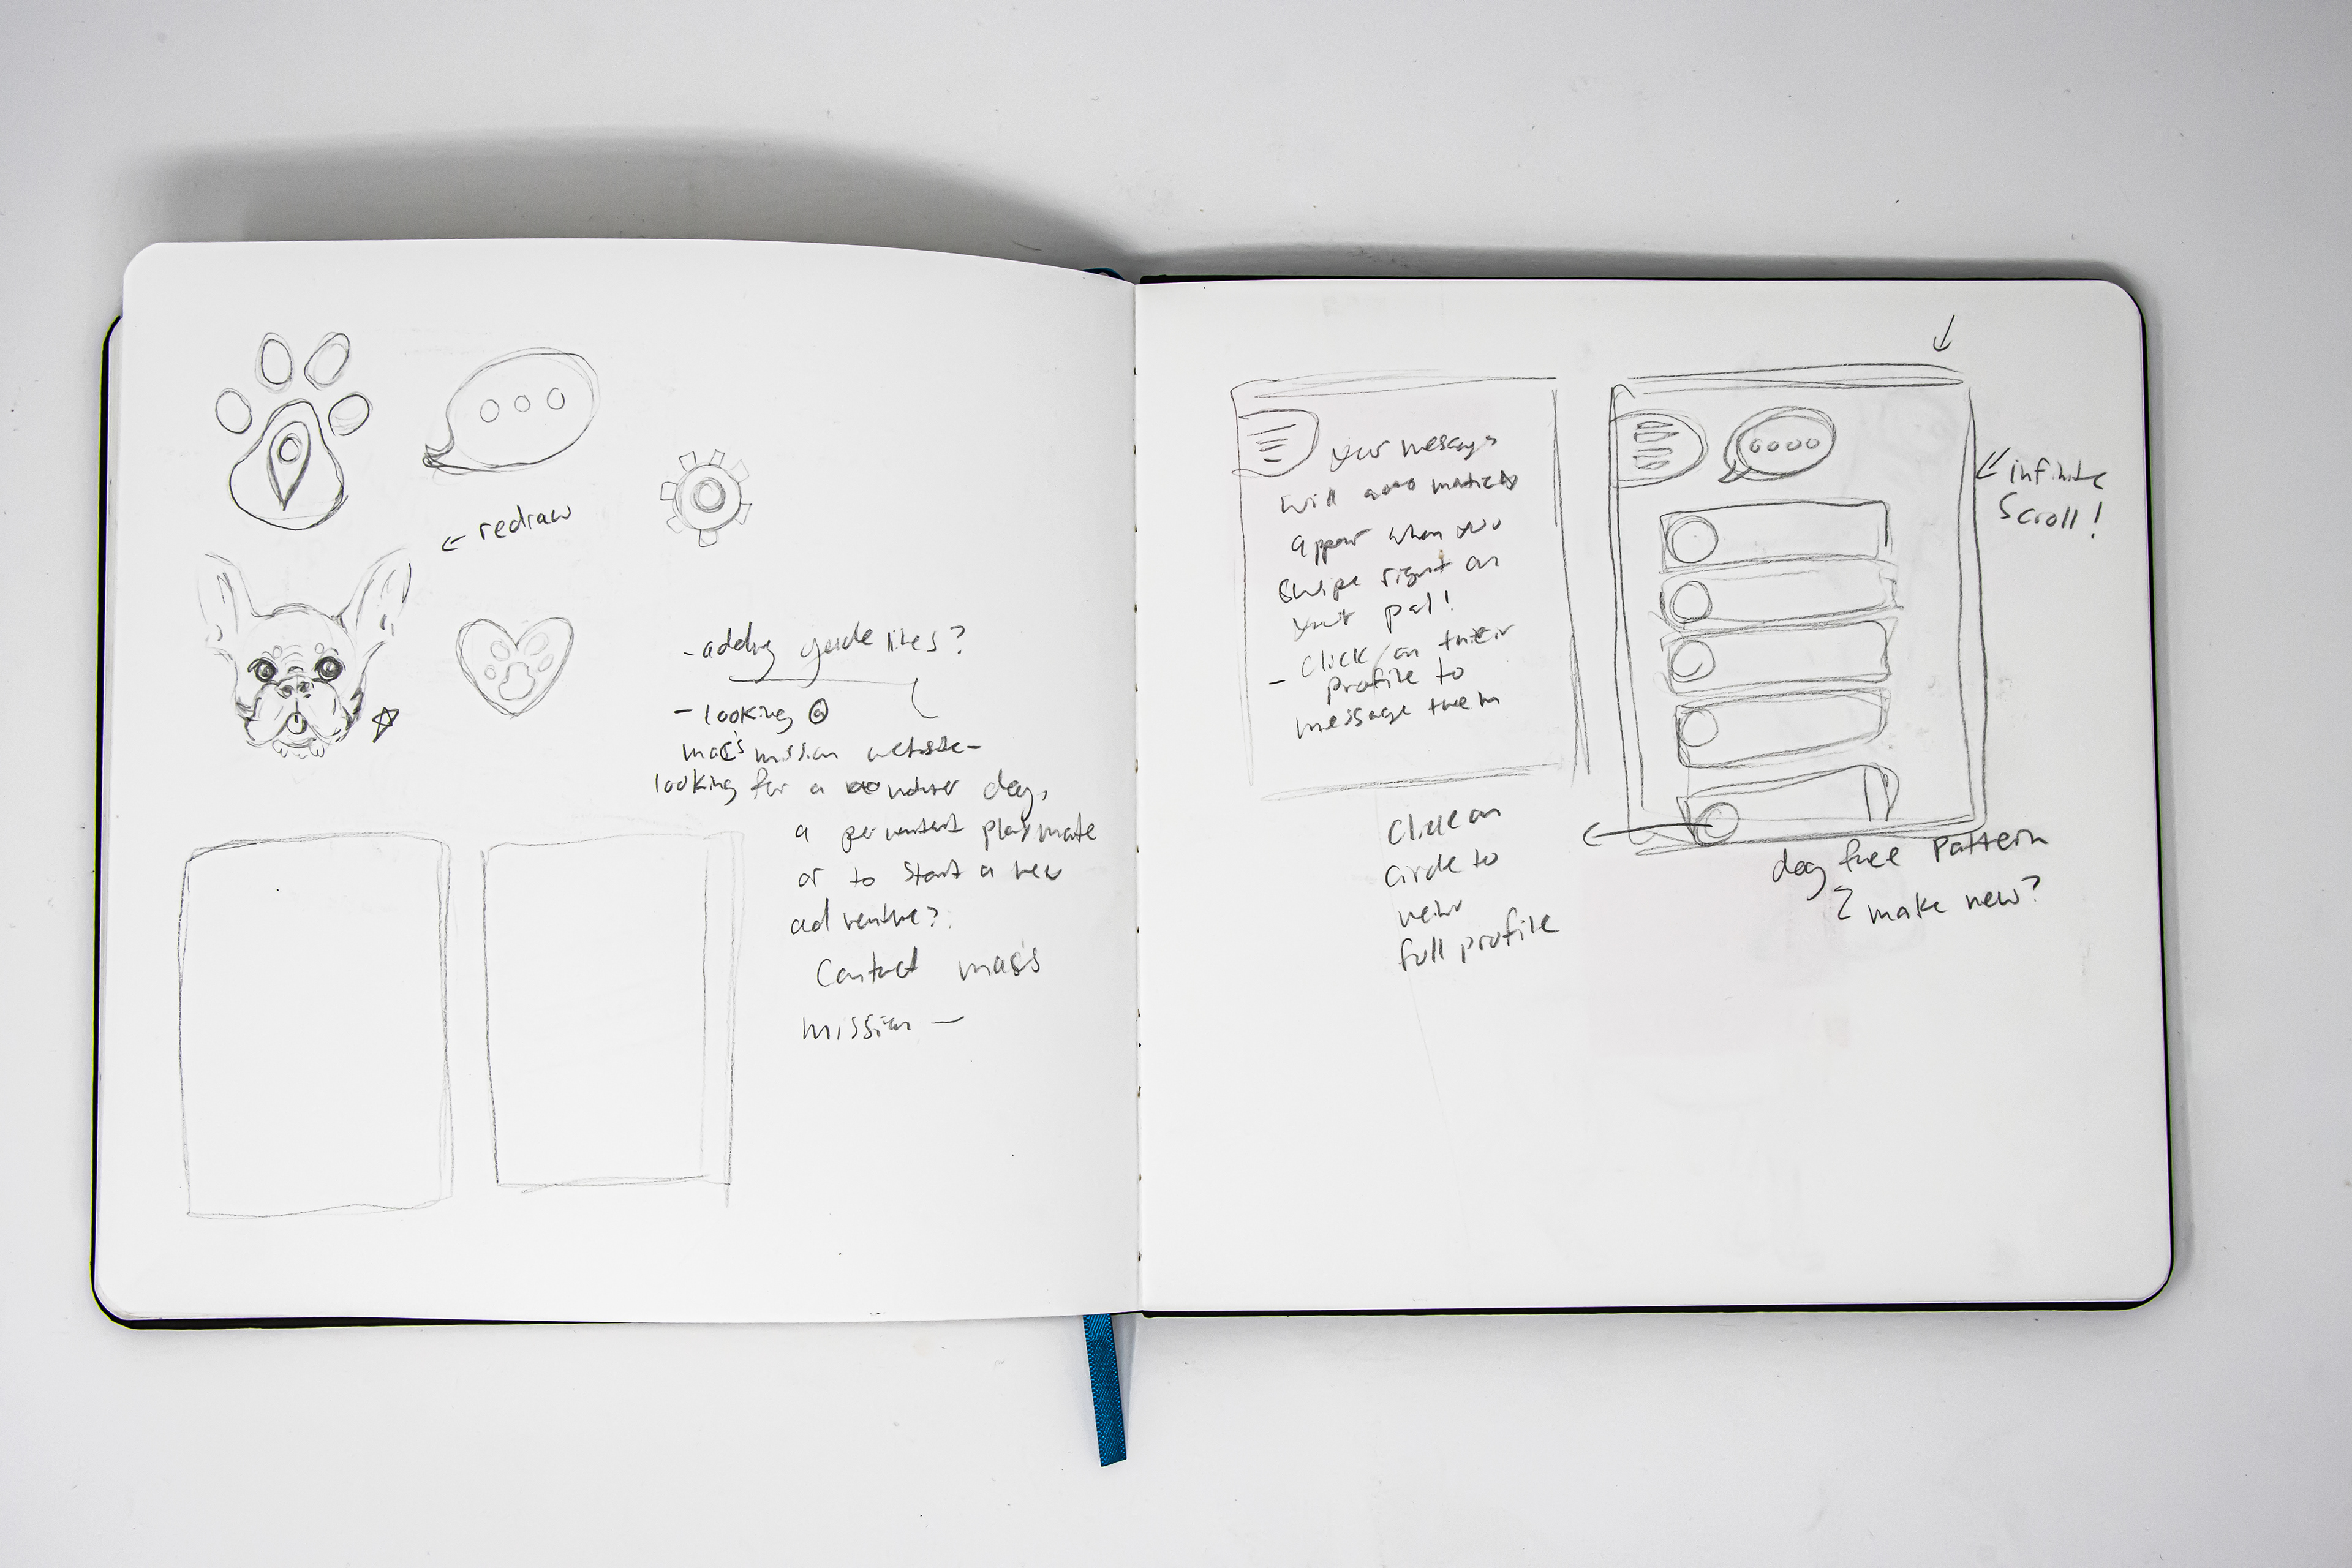 ← redraw
- adding guide lines?
- looking @
mac's mission website -
looking for a another dog,
a permanent playmate
or to start a new
adventure?
Contact mac's
mission -
Your messages
will
appear when you
swipe right on
your pal!
- click on their
profile to
message them
infinite
Scroll!
Click on
circle to
view
full profile
dog free Pattern
make new?